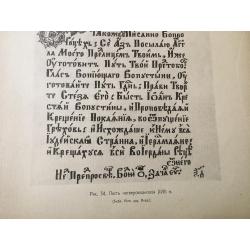 Ꙗкоже Писано Вопро
роцѣхъ; Се Азъ Посылаю Агг҃
ла Моего Предлицемъ Твоимъ, Иже
Оуготовитъ Путь Твой Предтобою
Гласъ Вопиющаго Вопустыни, Оу
готовайте Путь Гд҃нь; Правы Твори
те Стезѧ Его; Бысть Іѡаннъ Крестѧ
Вопустыни, и Проповѣдаѧ
Крещение Покаянія,
Грѣхѡвъ; И Исхождаше Кнему всѧ
Иудейская Страна, и Иерлимлѧне;
и Крещахусѧ вси Во рѣцѣ
ѿ него
Рис. 54. четвероевангелия XVII в.